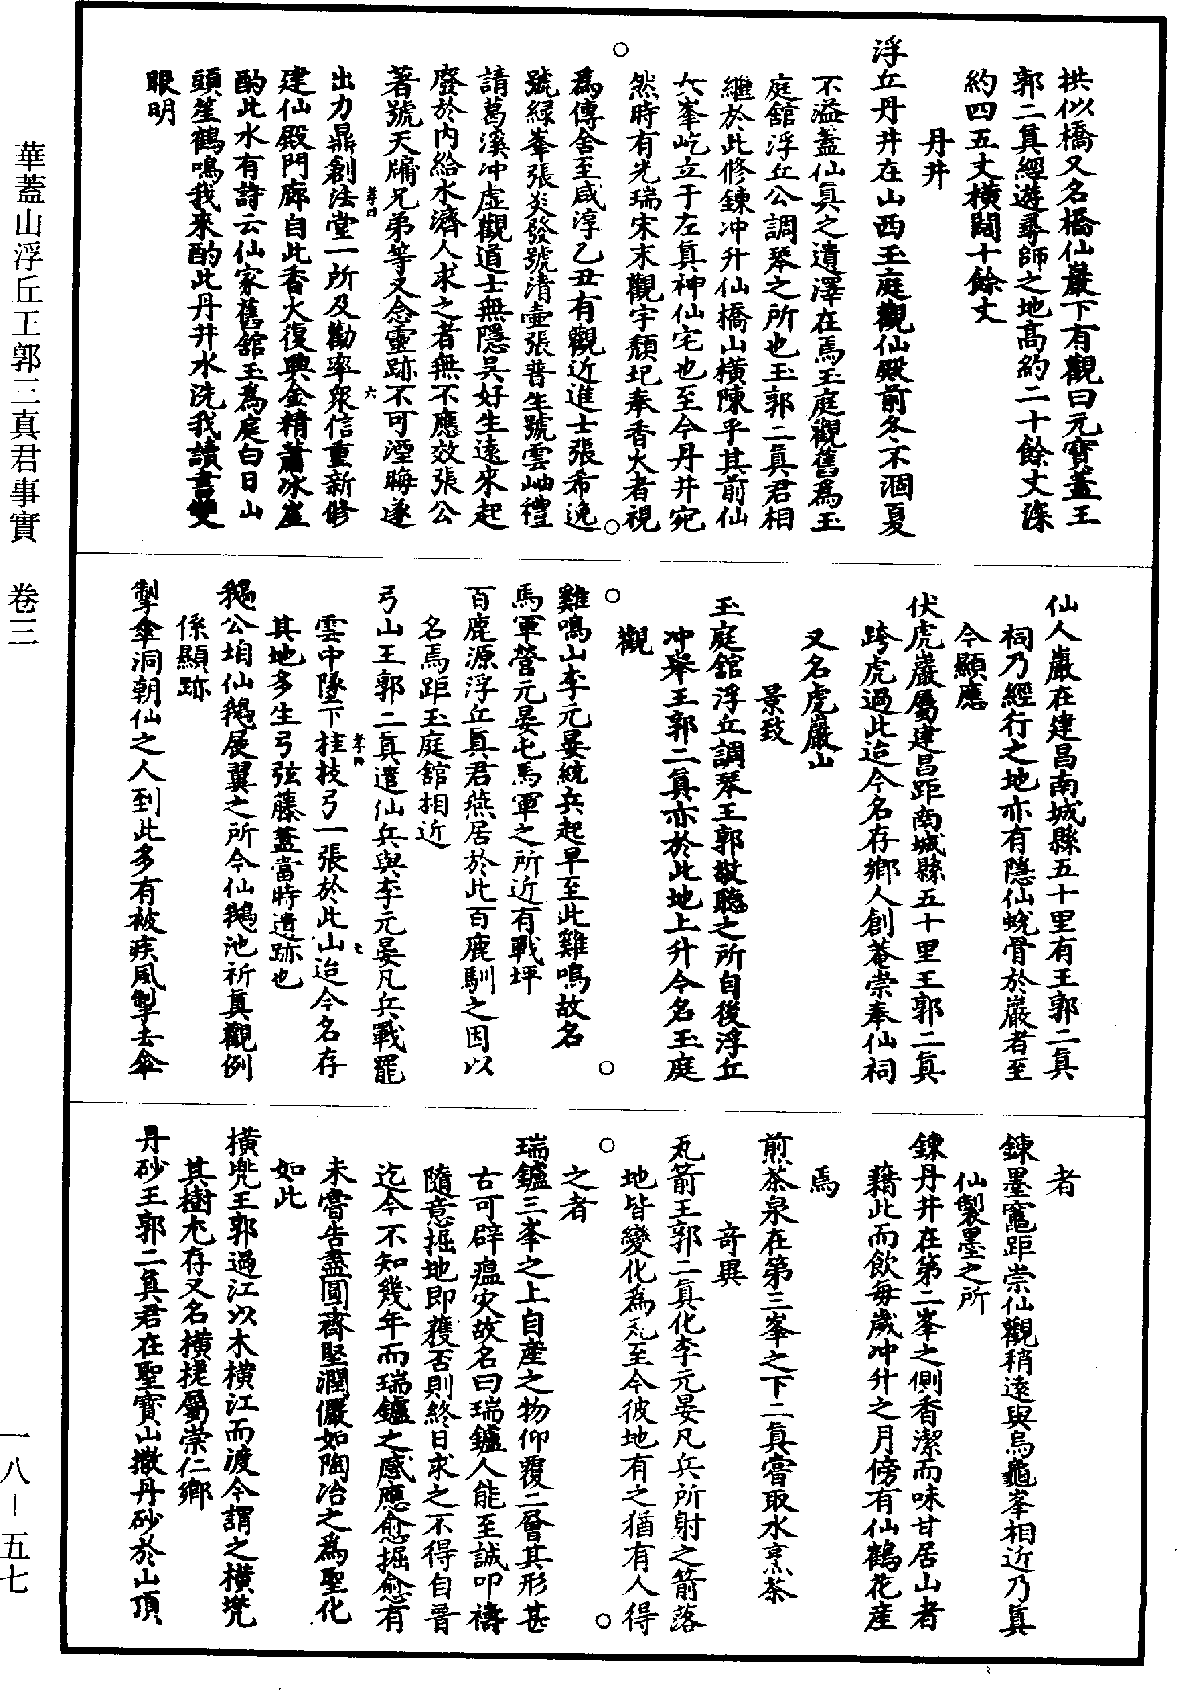 拱似橋又名橋仙巖下有觀曰元寶蓋王
郭二真經遊尋師之地高約二十餘丈深
約四五丈橫闊十餘丈
丹井
浮丘丹井在山西玉庭觀仙殿前冬不涸夏
不溢蓋仙真之遺澤在焉玉庭觀舊為玉
庭館浮丘公調琴之所也王郭二真君相
繼於此修鍊冲升仙橋山橫陳乎其前仙
大峯屹立于左真神仙宅也至今丹井宛
然時有光瑞宋末觀宇頹圮奉香火者視
為傳舍至咸淳乙丑有觀近進士張希逸
號綠峯張炎發號清壺張普生號雲岫禮
請葛溪冲虛觀道士無隱吳好生遠來起
廢於內給水濟人求之者無不應效張公
著號天牖兄弟等又念靈跡不可湮晦遂
出力鼎創法堂一所及勸率眾信重新修
建仙殿門廊自此香火復興金精蕭冰崖
酌此水有詩云仙家舊館玉為庭白日山
頭笙鶴鳴我來酌此丹井水洗我讀書雙
眼明
仙人巖在建昌南城縣五十里有王郭二真
祠乃經行之地亦有隱仙蛻骨於巖者至
今顯應
伏虎巖屬建昌距南城縣五十里王郭二真
跨虎過此迨今名存鄉人創菴崇奉仙祠
又名虎巖山
景致
玉庭館浮丘調琴王郭敬聽之所自後浮丘
冲舉王郭二真亦於此地上升今名玉庭
觀
雞鳴山李元晏統兵起早至此雞鳴故名
馬軍營元晏屯馬軍之所近有戰坪
百鹿源浮丘真君燕居於此百鹿馴之因以
名焉距玉庭館相近
弓山王郭二真遣仙兵與李元晏凡兵戰罷
雲中墜下挂枝弓一張於此山迨今名存
其地多生弓弦藤蓋當時遺跡也
鵝公垇仙鵝展翼之所今仙鵝池祈真觀例
係顯跡
掣傘洞朝仙之人到此多有被疾風掣去傘
者
鍊墨竈距崇仙觀稍遠與烏龜峯相近乃真
仙製墨之所
鍊丹井在第二峯之側香潔而味甘居山者
藉此而飲每歲冲升之月傍有仙鶴花產
焉
煎茶泉在第三峯之下二真嘗取水烹茶
奇異
瓦箭王郭二真化李元晏凡兵所射之箭落
地皆變化為瓦至今彼地有之猶有人得
之者
瑞鑪三峯之上自產之物仰覆二層其形甚
古可辟瘟灾故名曰瑞鑪人能至誠叩禱
隨意掘地即獲否則終日求之不得自晉
迄今不知幾年而瑞鑪之感應愈掘愈有
未嘗告盡圓齊堅潤儼如陶冶之為聖化
如此
橫兠王郭過江以木橫江而渡今謂之橫兠
其樹尤存又名橫槎屬崇仁鄉
丹砂王郭二真君在聖寶山撒丹砂於山頂
華蓋山浮丘王郭三真君事實 卷三
一八－五七